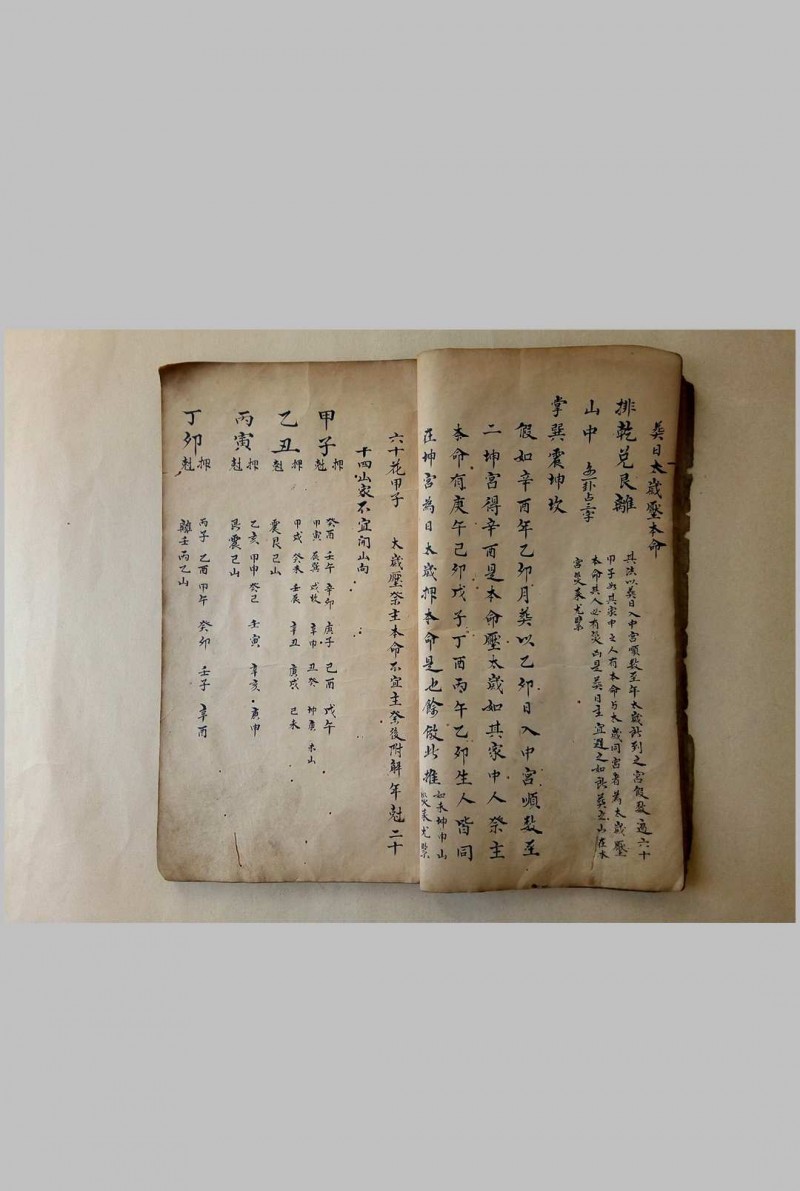 葬日太歲壓本命
其法以葬日入中宮順数至年太歲汁到之宮假数遍六十
甲子與其家中之人有本命與太歲同宮者為太歲壓
本命其人必有災凶是葬日主宜避之如喪葬立山在本
宮災来尤緊
排乾兑艮離
山中
掌巽震坤坎
假如辛酉年乙卯月葬以乙卯日入中宮順数至
二坤宮得辛酉是本命壓太歲如其家中人祭主
本命有庚午己卯戊子丁酉丙午乙卯生人皆同
在坤宮為日太歲押本命是也餘倣此推
如未坤申山
災来尤緊
六十花甲子 太歲壓祭主本命不宜主祭後附解年尅二十
十四山家不宜開山向
甲子 押 癸酉 壬午 辛卯 庚子 己酉 戊午
尅 甲寅 辰巽 戌坎 辛申 丑癸 坤庚 未山
乙丑 押 甲戌 癸未 壬辰 辛丑 庚戌 己未
尅 震艮己山
丙寅 押 乙亥 甲申 癸己 壬寅 辛亥 庚申
尅 震己山
丁卯 押 丙子 乙酉 甲午 癸卯 壬子 辛酉
尅 離壬丙乙山